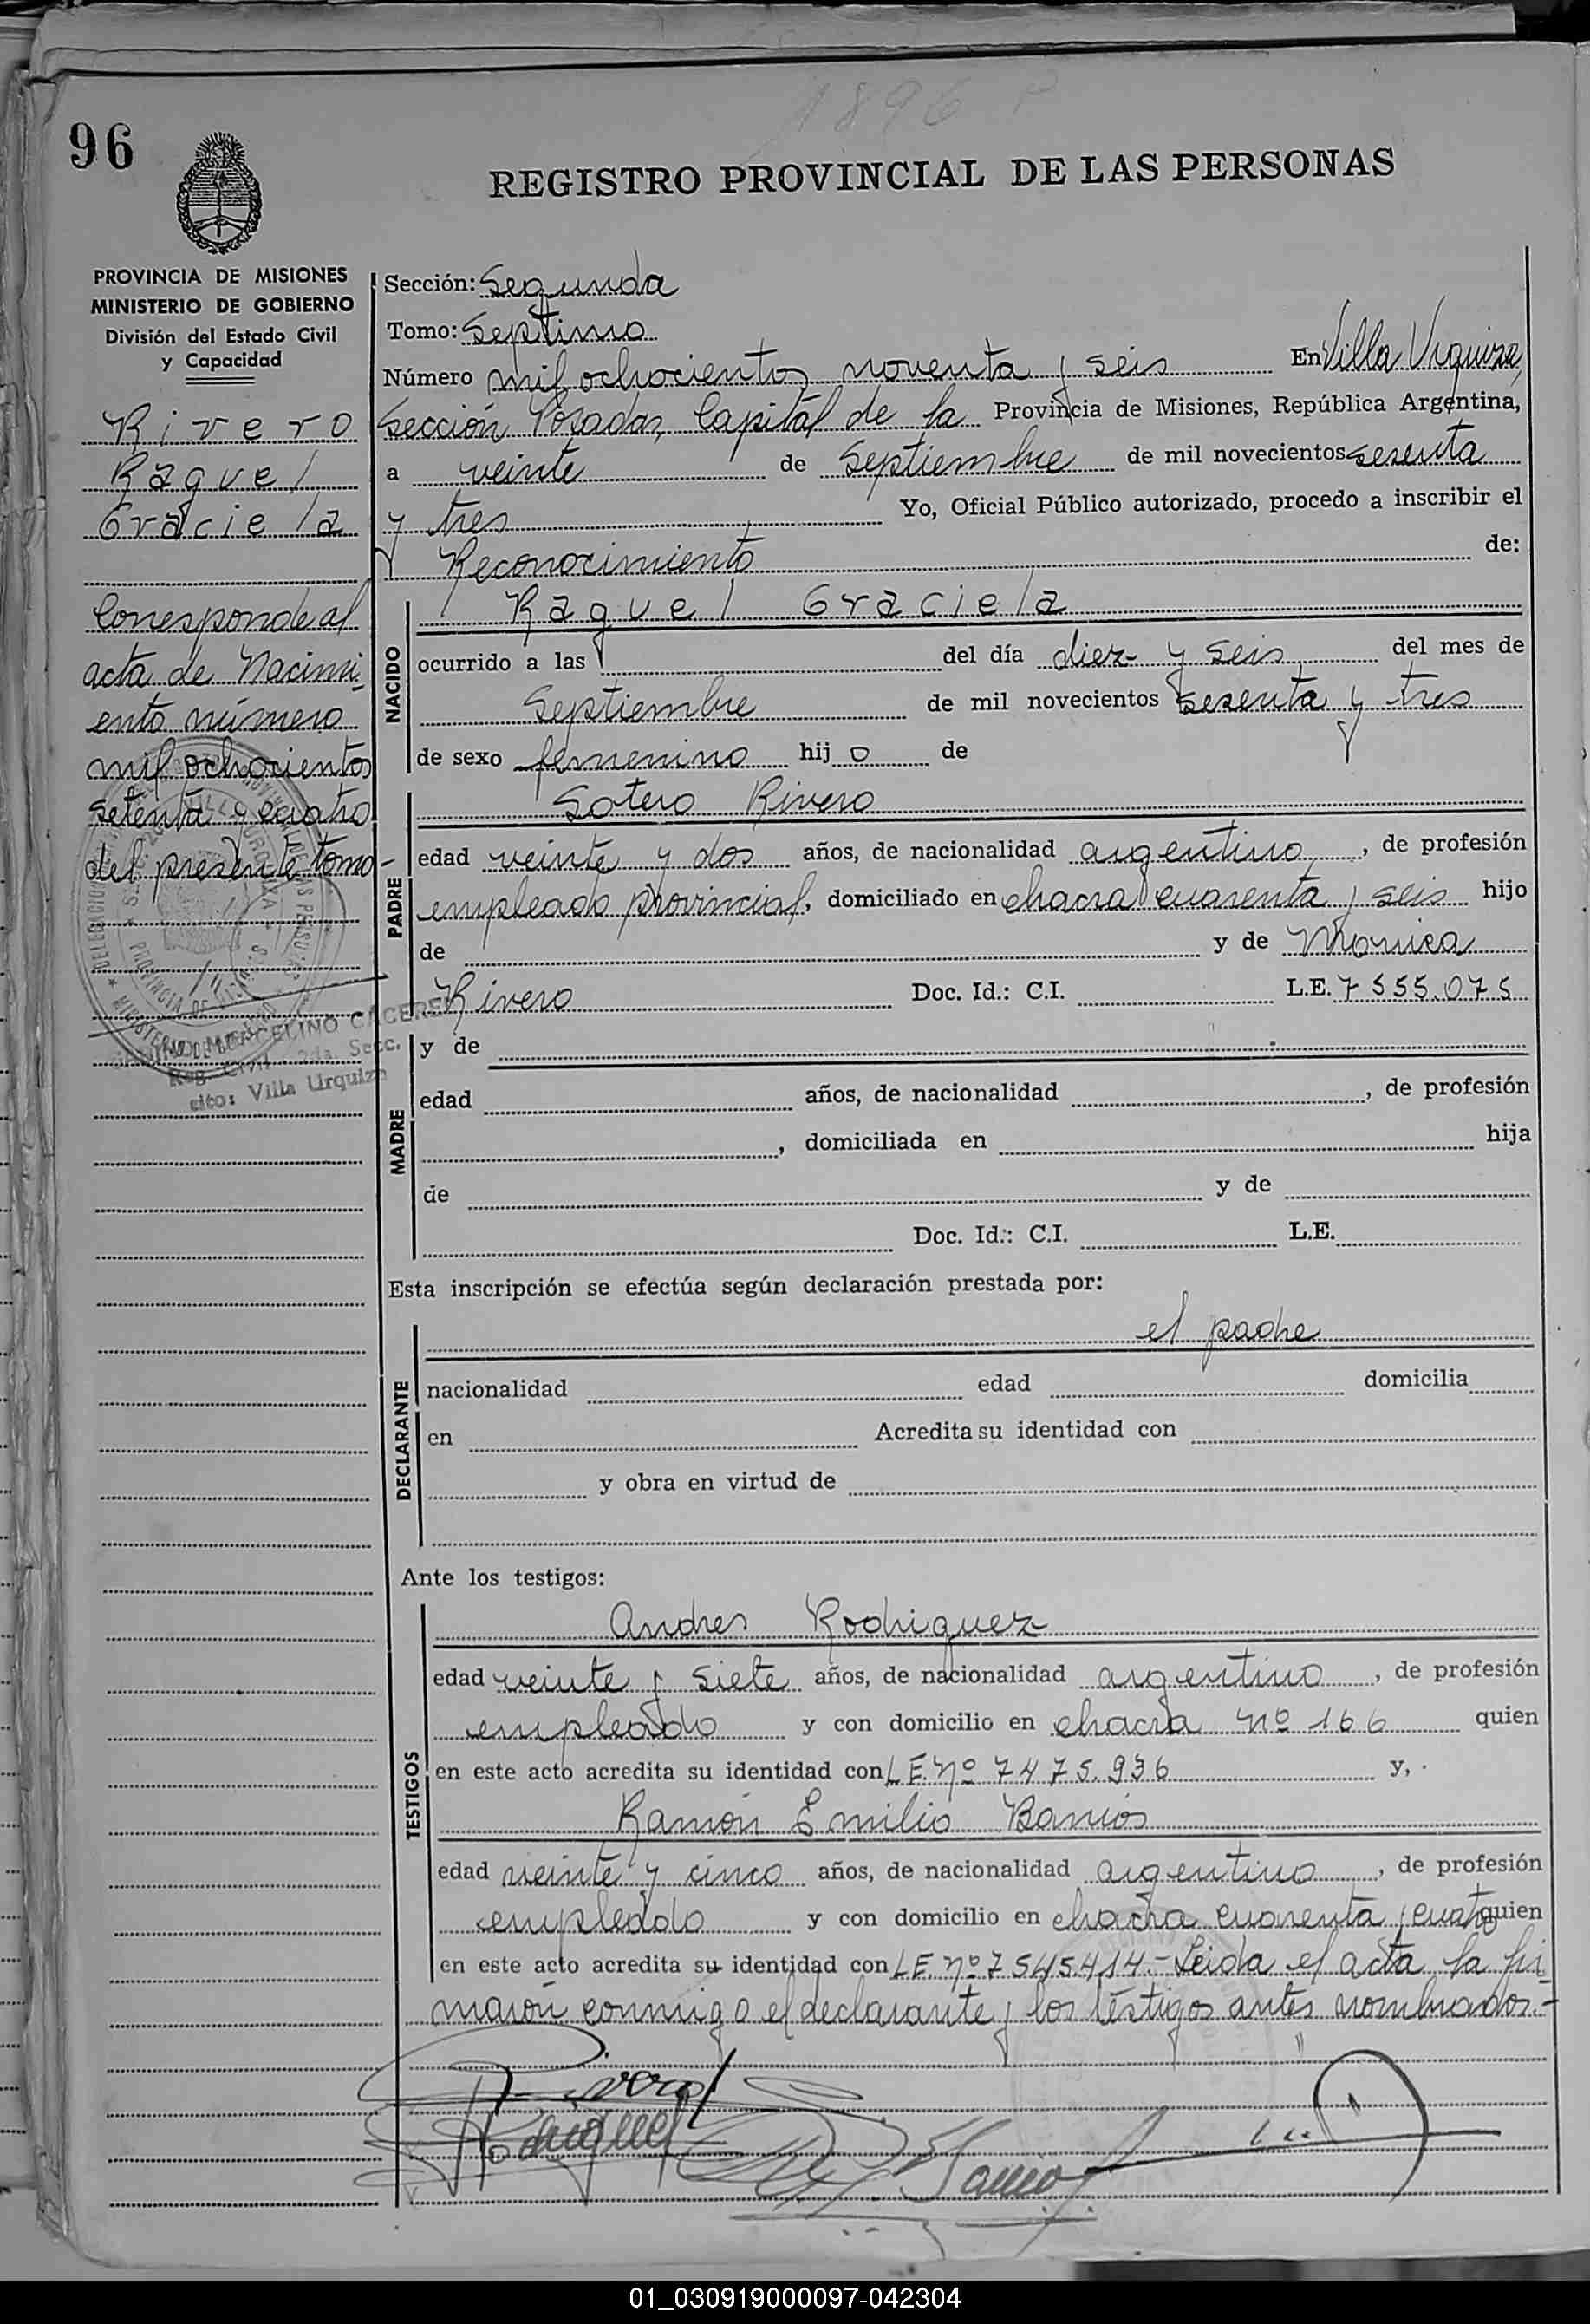 1896 P
96
REGISTRO PROVINCIAL DE LAS PERSONAS
PROVINCIA DE MISIONES
MINISTERIO DE GOBIERNO
División del Estado Civil
y Capacidad
Rivero
Raquel
Graciela
Corresponde al
acta de Nacimi-
ento número
mil ochocientos
setenta y cuatro
del presente tomo-
MARCELINO CACERES
Reg. Civil 2da. Secc.
cito: Villa Urquiza
Sección: Segunda
Tomo: Septimo
Número mil ochocientos noventa y seis En Villa Urquiza,
Sección Posadas, Capital de la Provincia de Misiones, República Argentina,
a veinte de Septiembre de mil novecientos sesenta
y tres Yo, Oficial Público autorizado, procedo a inscribir el
Reconocimiento de:
NACIDO
Raquel Graciela
ocurrido a las del día diez y seis del mes de
Septiembre de mil novecientos sesenta y tres
de sexo femenino hij o de
PADRE
Sotero Rivero
edad veinte y dos años, de nacionalidad argentino, de profesión
empleado provincial, domiciliado en chacra cuarenta y seis hijo
de y de Monica
Rivero Doc. Id.: C.I. L.E. 7555.075
MADRE
y de
edad años, de nacionalidad , de profesión
, domiciliada en hija
de y de
Doc. Id.: C.I. L.E.
Esta inscripción se efectúa según declaración prestada por:
DECLARANTE
el padre
nacionalidad edad domicilia
en Acredita su identidad con
y obra en virtud de
Ante los testigos:
TESTIGOS
Andres Rodriguez
edad veinte y siete años, de nacionalidad argentino, de profesión
empleado y con domicilio en chacra nº 166 quien
en este acto acredita su identidad con L.E. nº 7475.936 y,
Ramón Emilio Barrios
edad veinte y cinco años, de nacionalidad argentino, de profesión
empleado y con domicilio en chacra cuarenta y cuatro quien
en este acto acredita su identidad con L.E. nº 7545.414.- Leida el acta la fir-
maron conmigo el declarante y los testigos antes nombrados.-
Rivero
Rodriguez
Barrios
01_030919000097-042304